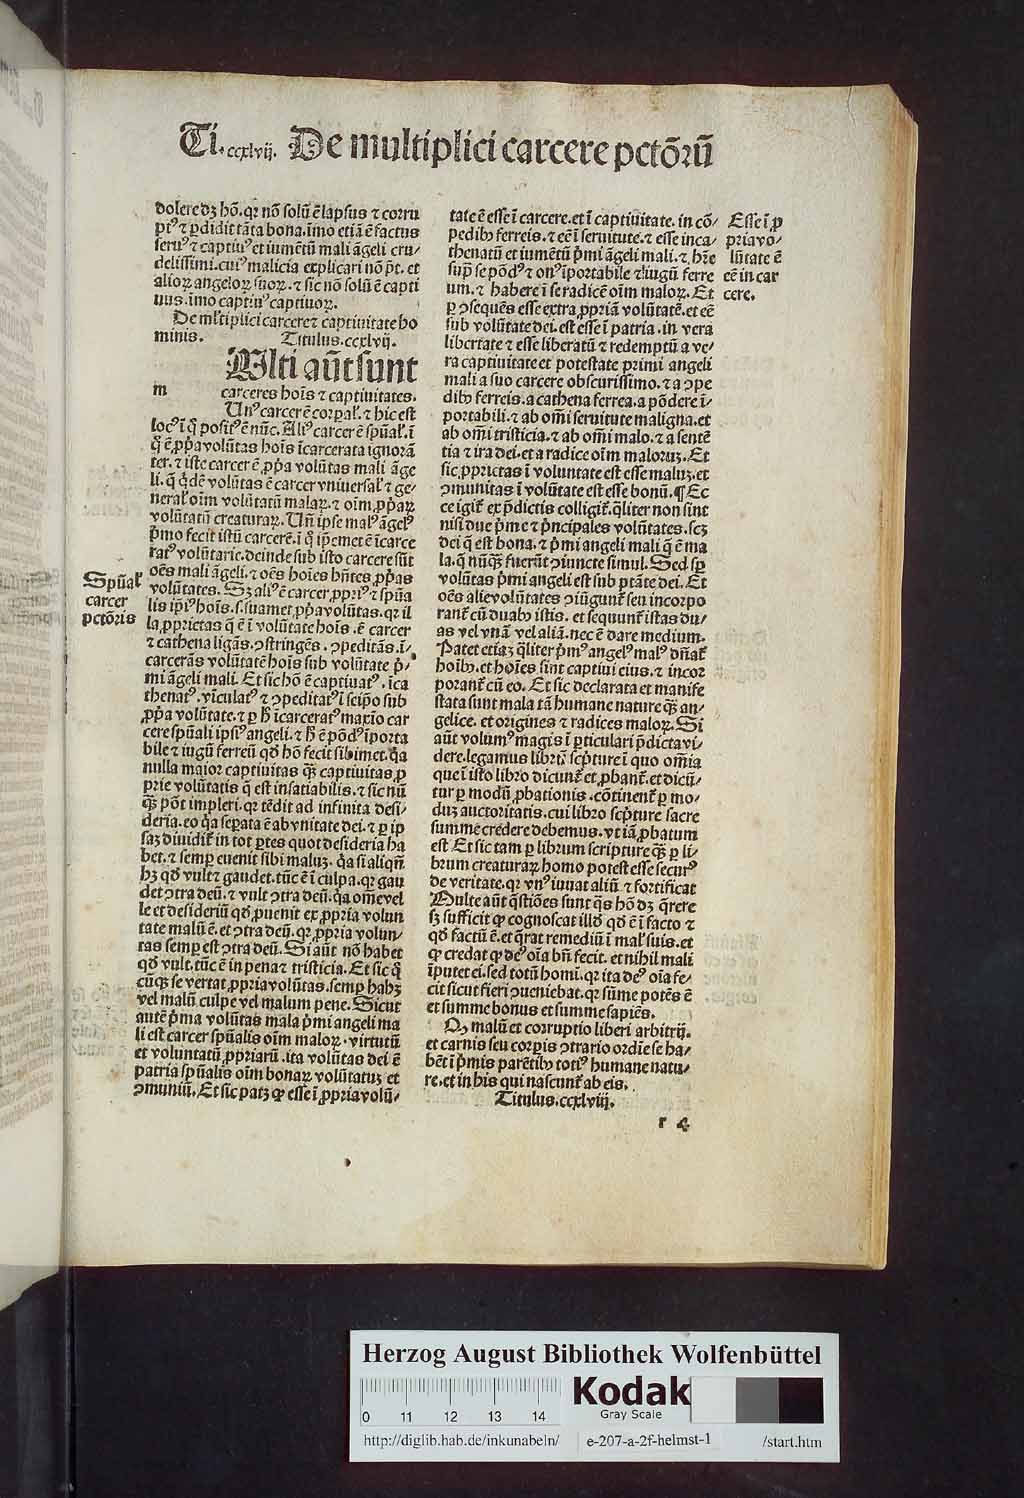 Ti. ccxlvij. De multiplici carcere pctõꝝ
dolere dꝫ hõ. qꝛ nõ solũ ẽ lapsus ⁊ corru
ptꝰ ⁊ ꝑdidit tãta bona. imo etiã ẽ factus
seruꝰ ⁊ captiuꝰ et iumẽtũ mali ãgeli cru/
delissimi. cuiꝰ malicia explicari nõ põt. et
alioꝝ angeloꝝ suoꝝ. ⁊ sic nõ solũ ẽ capti
uus. imo captiuꝰ captiuoꝝ.
De mltiplici carcere ⁊ captiuitate ho
minis. Titulus. ccxlvij.
Mlti aũt sunt
m carceres hoĩs ⁊ captiuitates.
Unꝰ carcer ẽ corꝑal̛. ⁊ hic est
locꝰ ĩ q̃ positꝰ ẽ nũc. Aliꝰ carcer ẽ spũal̛. ĩ
q̃ ẽ ꝓpͥa volũtas hoĩs ĩcarcerata ignorã
ter. ⁊ iste carcer ẽ ꝓpͥa voluntas mali ãge
li. q̃ qͥdẽ volũtas ẽ carcer vniuersal̛ ⁊ ge/
neral̛ oĩm volũtatũ malaꝝ. ⁊ oĩm ꝓpͥaꝝ
volũtatũ creaturaꝝ. Uñ ipse malꝰ ãgelꝰ
pͥmo fecit istũ carcerẽ. ĩ q̃ ipemet ẽ ĩcarce
ratꝰ volũtarie. deinde sub isto carcere sũt
oẽs mali ãgeli. ⁊ oẽs hoĩes hñtes ꝓpͥas
volũtates. Sꝫ aliꝰ ẽ carcer ꝓpriꝰ ⁊ spũa
lis ipͥiꝰ hoĩs. s. suamet ꝓpͥa volũtas. qꝛ il
la ꝓprietas q̃ ẽ ĩ volũtate hoĩs. ẽ carcer
⁊ cathena ligãs. ↄstringẽs. ↄpeditãs. ĩ/
carcerãs volũtatẽ hoĩs sub volũtate pͥ/
mi ãgeli mali. Et sic hõ ẽ captiuatꝰ. ĩca
thenatꝰ. vĩculatꝰ ⁊ ↄpeditatꝰ ĩ seipͦo sub
ꝓpͥa volũtate. ⁊ ꝑ h̃ ĩcarceratꝰ maxĩo car
cere spũali ipsiꝰ angeli. ⁊ h̃ ẽ põdꝰ ĩporta
bile ⁊ iugũ ferreũ qd̃ hõ fecit sibimet. q̃a
nulla maior captiuitas qꝫ̃ captiuitas ꝓ
prie volũtatis q̃ est insatiabilis. ⁊ sic nũ
qꝫ̃ põt impleri. qꝛ tẽdit ad infinita desi/
deria. eo q̃a seꝑata ẽ ab vnitate dei. ⁊ ꝑ ip
saꝫ diuidit̛ in tot ꝑtes quot desideria ha
bet. ⁊ semꝑ euenit sibi maluꝫ. q̃a si aliqñ
hꝫ qd̃ vult ⁊ gaudet. tũc ẽ ĩ culpa. qꝛ gau
det ↄtra deũ. ⁊ vult ↄtra deũ. q̃a om̃e vel
le et desideriũ qd̃ ꝓuenit ex ꝓpria volun
tate malũ ẽ. et ↄtra deũ. qꝛ ꝓpria volun/
tas semꝑ est ↄtra deũ. Si aũt nõ habet
qd̃ vult. tũc ẽ in pena ⁊ tristicia. Et sic q̃
cũqꝫ se vertat ꝓpria volũtas. semꝑ habꝫ
vel malũ culpe vel malum pene. Sicut
autẽ pͥma volũtas mala pͥmi angeli ma
li est carcer spũalis oĩm maloꝝ. virtutũ
et voluntatũ ꝓpriarũ. ita volũtas dei ẽ
patria spũalis oĩm bonaꝝ volũtatuꝫ et
ↄmuniũ. Et sic patꝫ ꝙ esse ĩ ꝓpria volũ/
Spũal̛
carcer
pctõris
tate ẽ esse ĩ carcere. et ĩ captiuitate. in cõ/
pedibꝫ ferreis. ⁊ eẽ ĩ seruitute. ⁊ esse inca/
thenatũ et iumẽtũ pͥmi ãgeli mali. ⁊ hr̃e
suꝑ se põdꝰ ⁊ onꝰ ĩportabile ⁊ iugũ ferre
um. ⁊ habere ĩ se radicẽ oĩm maloꝝ. Et
ꝑ ↄsequẽs esse extra ꝓpriã voluntatẽ. et eẽ
sub volũtate dei. est esse ĩ patria. in vera
libertate ⁊ esse liberatũ ⁊ redemptũ a ve/
ra captiuitate et potestate primi angeli
mali a suo carcere obscurissimo. ⁊ a ↄpe
dibꝫ ferreis. a cathena ferrea. a põdere ĩ/
portabili. ⁊ ab om̃i seruitute maligna. et
ab om̃i tristicia. ⁊ ab om̃i malo. ⁊ a sentẽ
tia ⁊ ira dei. et a radice oĩm maloruꝫ. Et
sic ꝓprietas ĩ voluntate est esse maluꝫ. et
ↄmunitas ĩ volũtate est esse bonũ. ¶ Ec
ce igit̛ ex pͥdictis colligit̛. qͣliter non sint
nisi due pͥme ⁊ pͥncipales volũtates. scꝫ
dei q̃ est bona. ⁊ pͥmi angeli mali q̃ ẽ ma
la. q̃ nũqꝫ̃ fuerũt ↄiuncte simul. Sed sꝑ
volũtas pͥmi angeli est sub ptãte dei. Et
oẽs alie volũtates ↄiũgunt̛ seu incorpo
rant̛ cũ duabꝫ istis. et sequunt̛ istas du/
as vel vnã vel aliã. nec ẽ dare medium.
Patet etiaꝫ qͣliter pͥmꝰ angelꝰ malꝰ dñat̛
hoĩbꝫ. et hoĩes sint captiui eius. ⁊ incor
porant̛ cũ eo. Et sic declarata et manife
stata sunt mala tã humane nature qꝫ̃ an/
gelice. et origines ⁊ radices maloꝝ. Si
aũt volumꝰ magis ĩ ꝑticulari pͥdicta vi/
dere. legamus librũ scpͥture ĩ quo om̃ia
que ĩ isto libro dicunt̛ et ꝓbant̛. et dicũ/
tur ꝑ modũ ꝓbationis. cõtinent̛ ꝑ mo/
duꝫ auctoritatis. cui libro scpͥture sacre
summe credere debemus. vt iã ꝓbatum
est Et sic tam ꝑ librum scripture qꝫ̃ ꝑ li/
brum creaturaꝝ homo potest esse securꝰ
de veritate. qꝛ vnꝰ iuuat aliũ ⁊ fortificat
Multe aũt q̃stiões sunt q̃s hõ dꝫ q̃rere
sꝫ sufficit ꝙ cognoscat illd̃ qd̃ ẽ ĩ facto ⁊
qd̃ factũ ẽ. et q̃rat remediũ ĩ mal̛ suis. et
ꝙ credat ꝙ deꝰ oĩa bñ fecit. et nihil mali
ĩputet ei. sed totũ homĩ. qꝛ ita deꝰ oĩa fe/
cit sicut fieri ↄueniebat. qꝛ sũme potẽs ẽ
et summe bonus et summe sapiẽs.
Qꝫ malũ et corruptio liberi arbitrij.
et carnis seu corꝑis ↄtrario ordĩe se ha/
bẽt ĩ pͥmis parẽtibꝫ totiꝰ humane natu/
re. et in his qui nascunt̛ ab eis.
Titulus. ccxlviij.
r 4
Esse ĩ ꝓ
pria vo/
lũtate ẽ
eẽ in car
cere.
Herzog August Bibliothek Wolfenbüttel
0 11 12 13 14
Kodak
Gray Scale
http://diglib.hab.de/inkunabeln/ e-207-a-2f-helmst-1 /start.htm